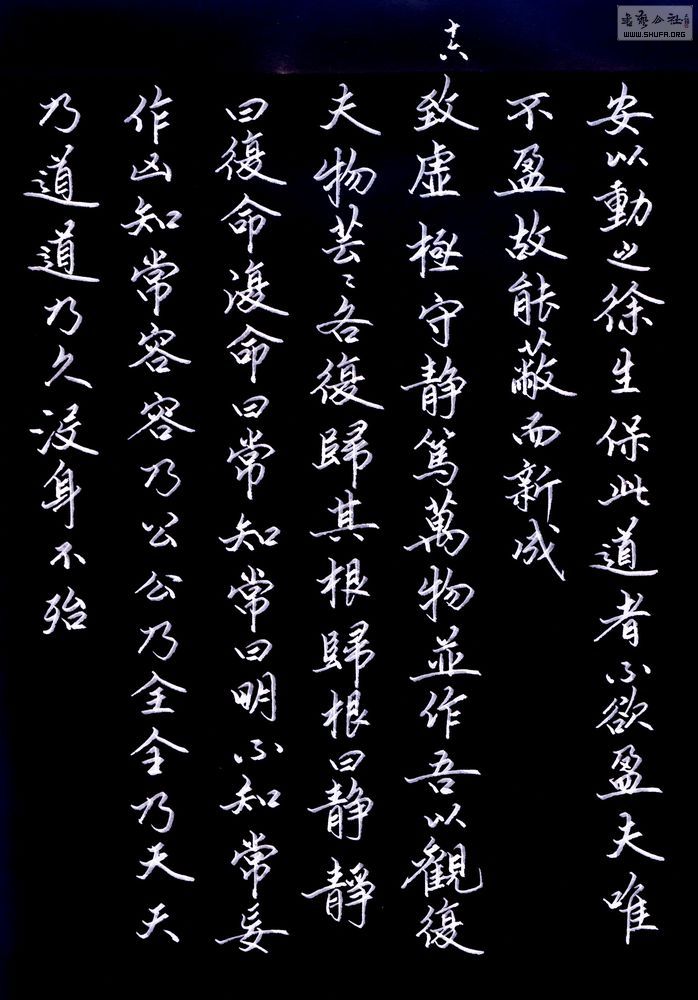 安以動之徐生保此道者不欲盈夫唯
不盈故能蔽而新成
十六
致虛極守静篤萬物並作吾以觀復
夫物芸〻各復歸其根歸根曰静靜
曰復命復命曰常知常曰明不知常妄
作凶知常容容乃公公乃全全乃天天
乃道道乃久没身不殆
書藝公社
WWW.SHUFA.ORG